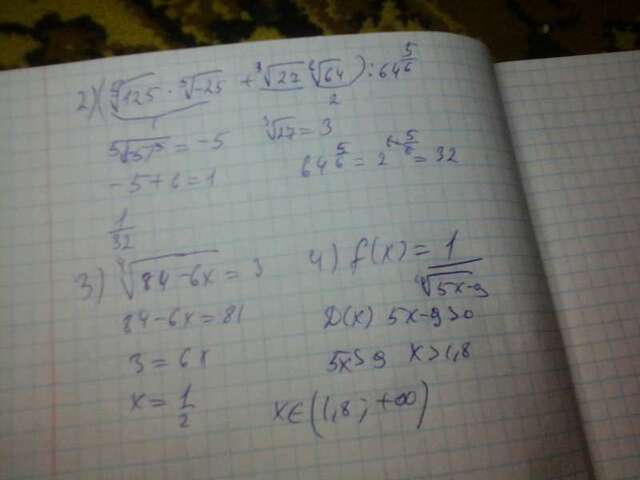 2) (⁵√125 · ⁵√-25 + ³√27 ⁶√64) : 64^(5/6)
2
⁵√-5⁵ = -5  ³√27 = 3
-5+6=1  64^(5/6) = 2^(6·5/6) = 32
1/32
3) ⁴√84-6x = 3
84-6x=81
3=6x
x=1/2
4) f(x)=1/⁴√5x-9
D(x) 5x-9>0
5x>9  x>1,8
x∈(1,8; +∞)